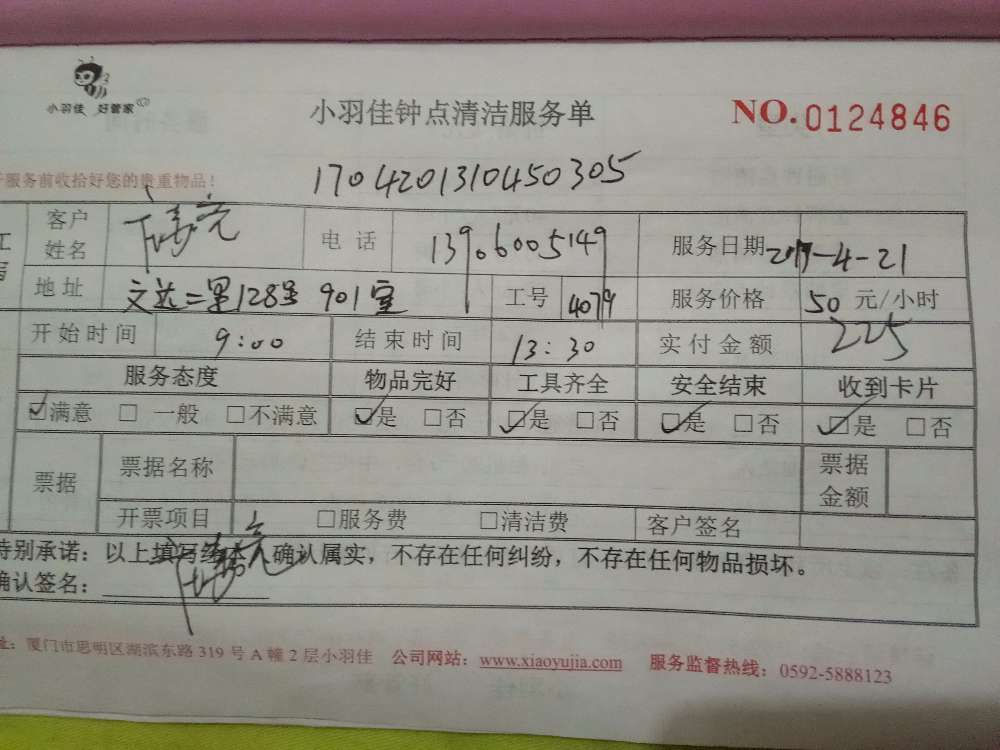 小羽佳 好管家
小羽佳钟点清洁服务单
NO.0124846
服务前收拾好您的贵重物品！
1704201310450305
客户姓名 电话 13906005149 服务日期 2017-4-21
地址 文达二里128号 901室 工号 4079 服务价格 50 元/小时
开始时间 9:00 结束时间 13:30 实付金额 225
服务态度 物品完好 工具齐全 安全结束 收到卡片
☑满意 □ 一般 □不满意 ☑是 □否 ☑是 □否 ☑是 □否 ☑是 □否
票据 票据名称 票据金额
开票项目 □服务费 □清洁费 客户签名
特别承诺：以上填写经本人确认属实，不存在任何纠纷，不存在任何物品损坏。
确认签名：
址：厦门市思明区湖滨东路 319 号 A 幢 2 层小羽佳 公司网站：www.xiaoyujia.com 服务监督热线：0592-5888123